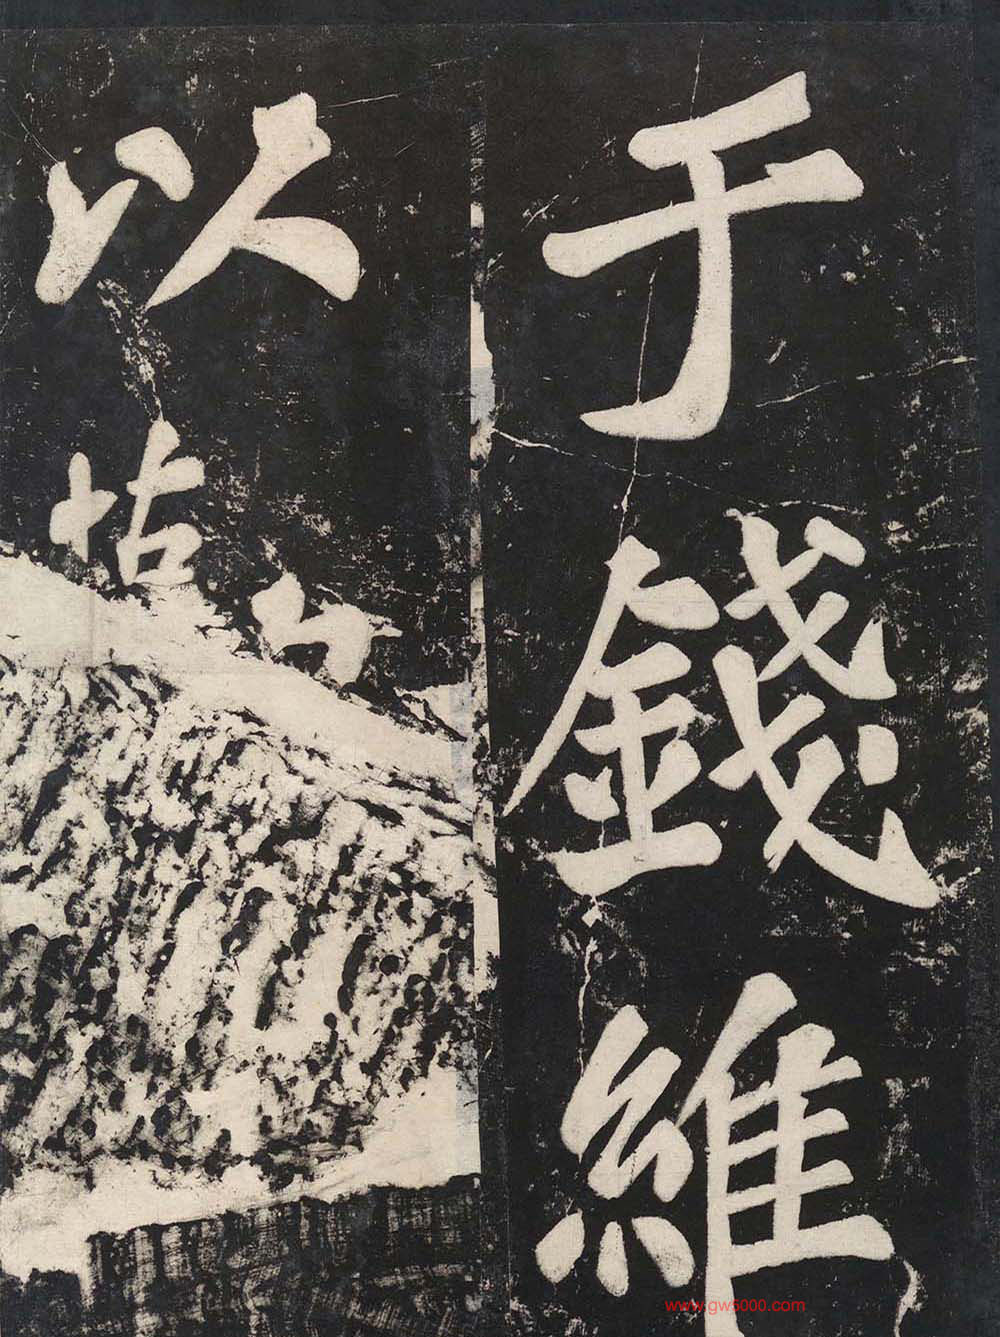 于錢維
以
www.gw5000.com